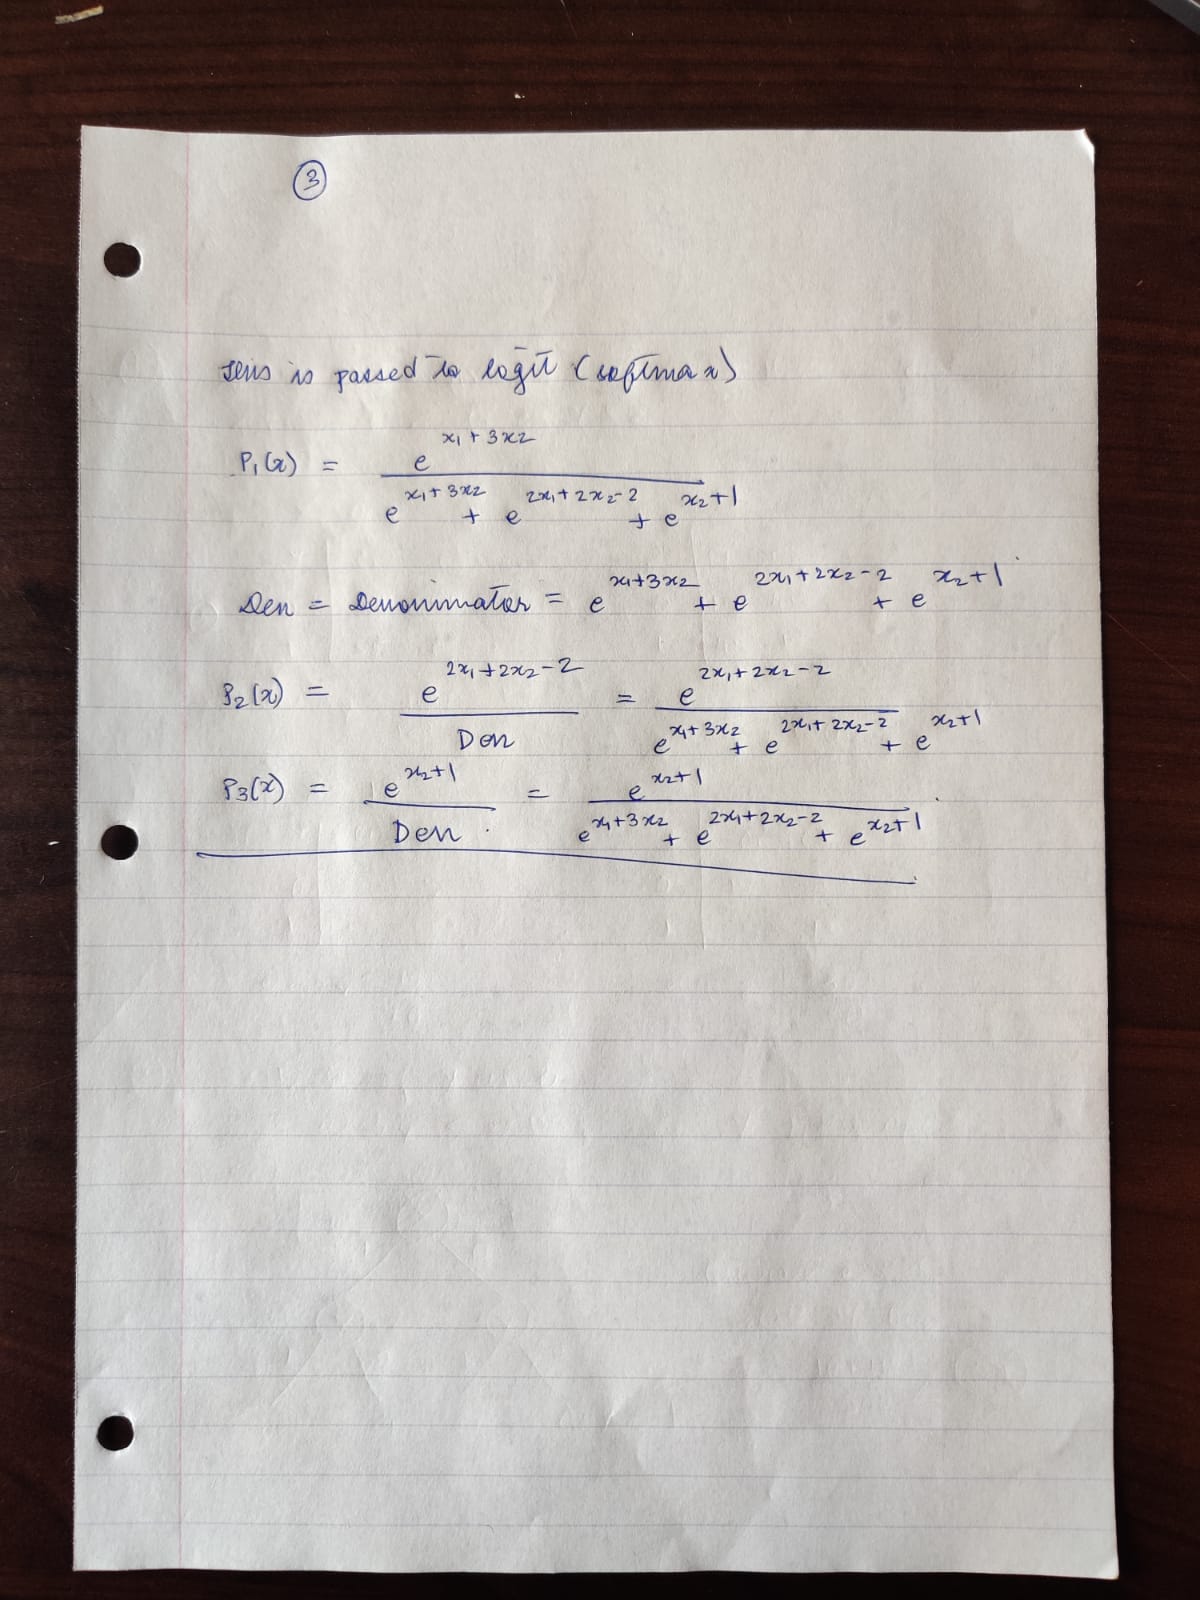 ③
This is passed to logit (softmax)
P₁(x) = e^(x₁+3x₂) / (e^(x₁+3x₂) + e^(2x₁+2x₂-2) + e^(x₂+1))
Den = Denonimator = e^(x₁+3x₂) + e^(2x₁+2x₂-2) + e^(x₂+1)
P₂(x) = e^(2x₁+2x₂-2) / Den = e^(2x₁+2x₂-2) / (e^(x₁+3x₂) + e^(2x₁+2x₂-2) + e^(x₂+1))
P₃(x) = e^(x₂+1) / Den = e^(x₂+1) / (e^(x₁+3x₂) + e^(2x₁+2x₂-2) + e^(x₂+1))